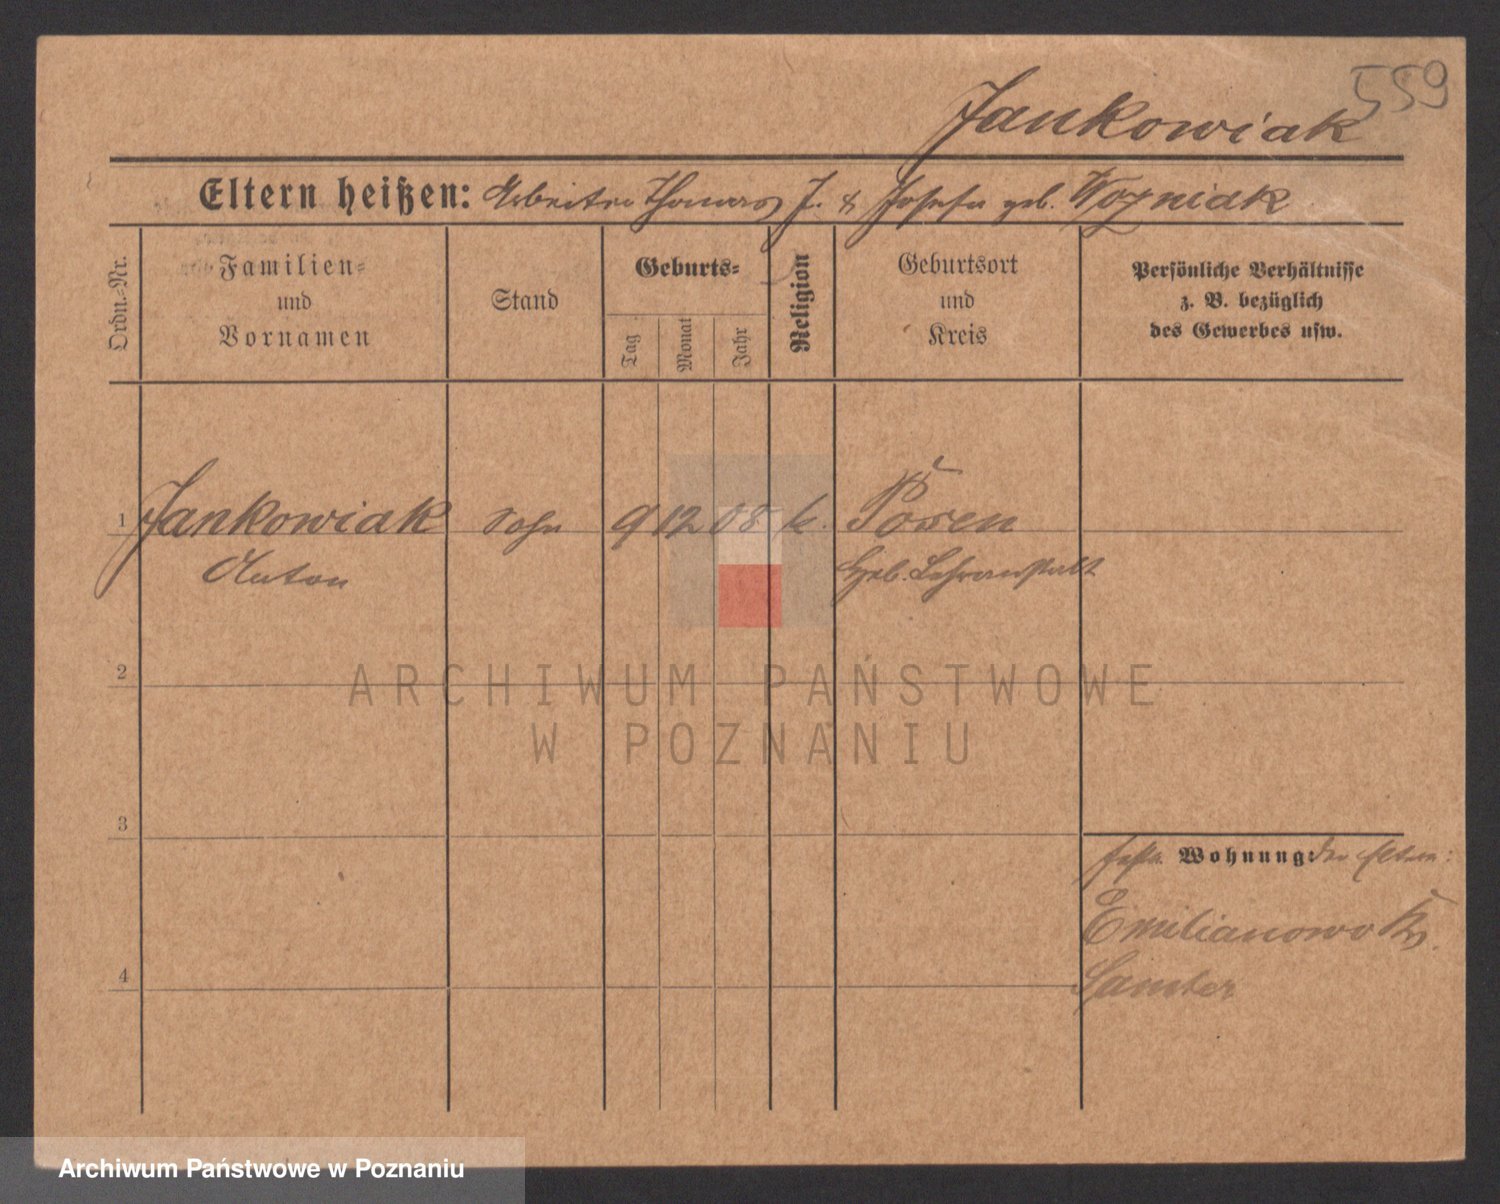 559
Jankowiak
Eltern heißen: Arbeiter Thomas J. & Josefa geb. Wozniak
Ordn.-Nr.
Familien-
und
Vornamen
Stand
Geburts-
Tag
Monat
Jahr
Religion
Geburtsort
und
Kreis
Persönliche Verhältnisse
z. B. bezüglich
des Gewerbes usw.
1 Jankowiak Sohn 9 12 08 k. Posen
Anton Heb. Lehranstalt
2
ARCHIWUM PAŃSTWOWE
W POZNANIU
3
Wohnung: der Eltern:
Emilianowo Kr.
4
Samter
Archiwum Państwowe w Poznaniu